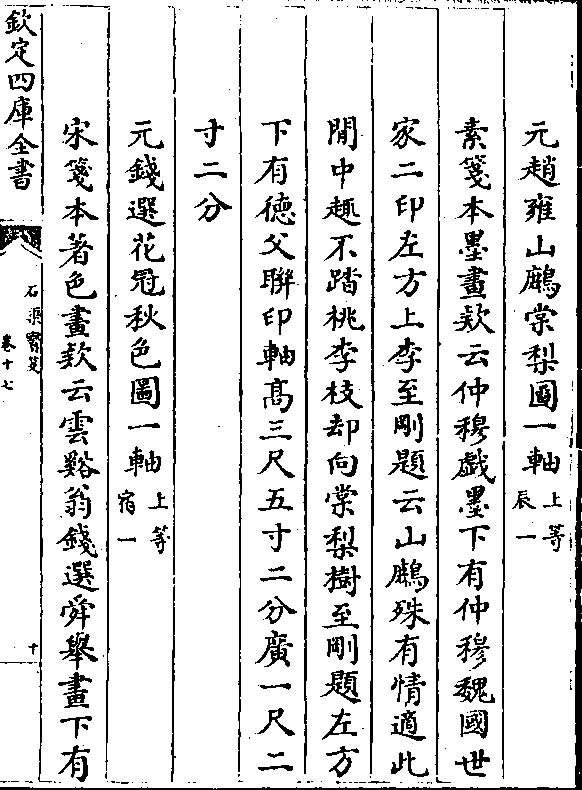 元趙雍山鷓棠梨圖一軸上等辰一
素箋本墨畫欵云仲穆戲墨下有仲穆魏國世
家二印左方上李至剛題云山鷓殊有情適此
閒中趣不踏桃李枝却向棠梨樹至剛題左方
下有德父聨印軸髙三尺五寸二分廣一尺二
寸二分
元錢選花冠秋色圖一軸上等宿一
宋箋本著色畫欵云雲谿翁錢選舜舉畫下有
欽定四庫全書
石渠寳笈
卷十七
十